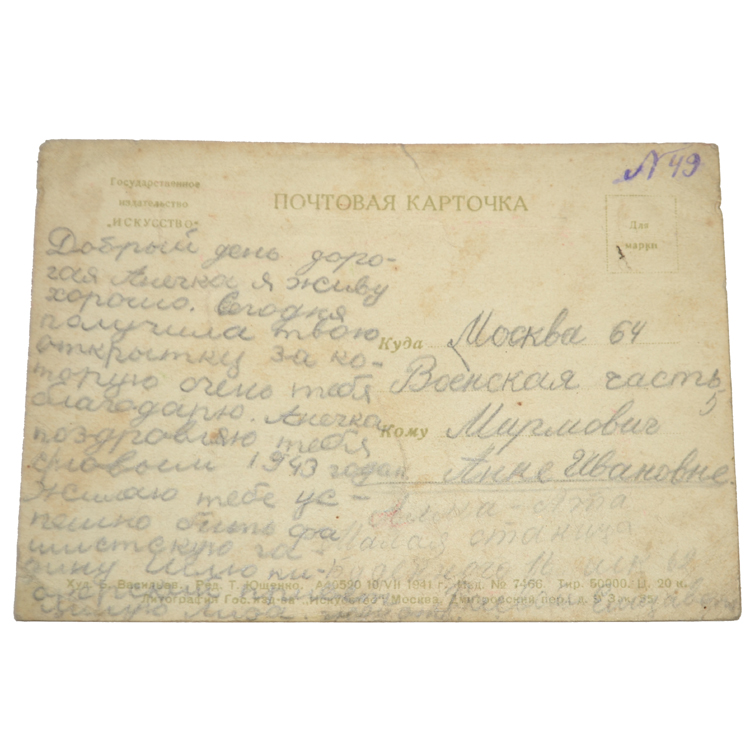 N 49
Государственное
издательство
„ИСКУССТВО"
ПОЧТОВАЯ КАРТОЧКА
Для
марки
Добрый день доро-
гая Анечка я живу
хорошо. Сегодня
получила твою
открытку за ко-
торую очень тебя
благодарю. Анечка
поздровляю тебя
с новым 1943 годом
Желаю тебе ус-
пешно бить фа
шистскую га
дину Шлю
Куда Москва 64
Военская часть
5
Кому Мирмович
Анне Ивановне
Алма-Ата
Малая станица
Худ. Б. Васильев. Ред. Т. Ющенко. 19/VII 1941 г. Изд. № 7466. Тир. 50000. Ц. 20 к.
Литография Гос. изд-ва „Искусство" Москва, Дмитровский пер. д. 9